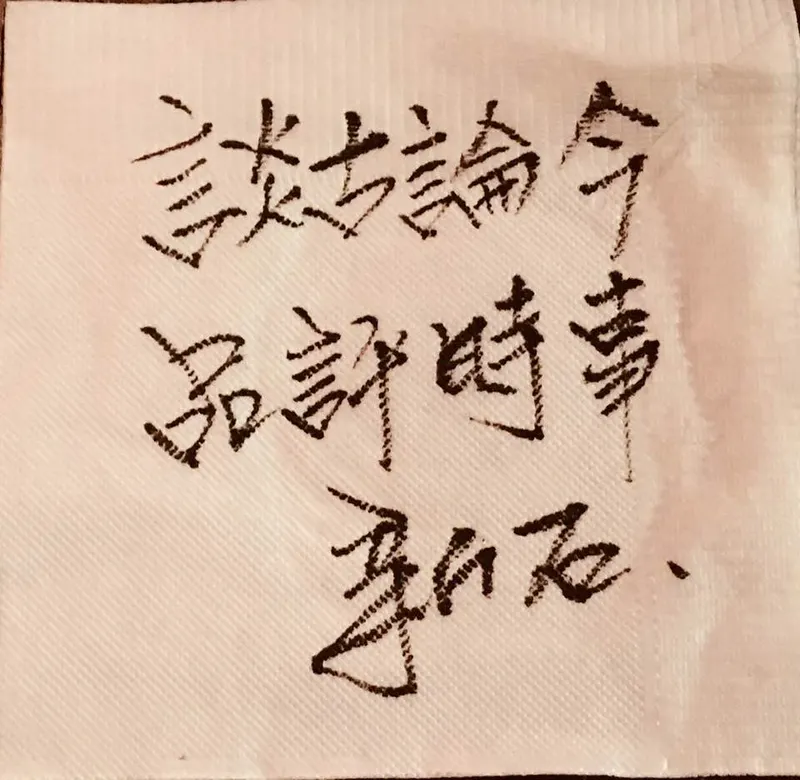 談古論今
品評時事
石、